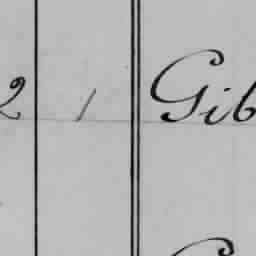 2 1 Gib